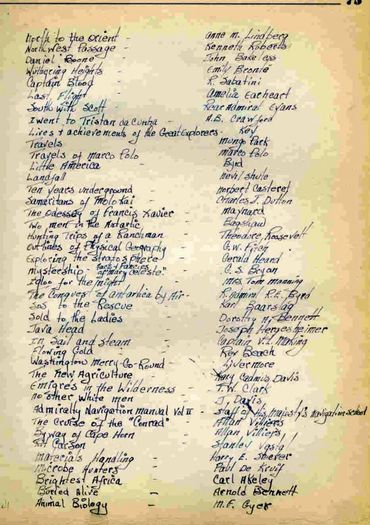 North to the Orient - Anne M. Lindberg
North West Passage - Kenneth Roberts
Daniel Boone - John Bakeless
Wuthering Heights - Emily Bronte
Captain Blood - R. Sabatini
Last Flight - Amelia Earheart
South with Scott - Rear Admiral Evans
I went to Tristan da Cunha - N.B. Crawford
Lives & achievements of the Great Explorers - Key
Travels - Mungo Park
Travels of Marco Polo - Marco Polo
Little America - Byrd
Landfall - Nevil Shute
Ten years underground - Norbert Casteret
Samaritans of Molokai - Charles J. Dutton
The Odessey of Francis Xavier - Maynard
Two men in the Antartic - Bagshaw
Hunting Trips of a Ranchman - Theodore Roosevelt
Outlines of Physical Geography - G.W.
Exploring the Stratosphere - Gerald Heard
Mysteryship - "Mary Celeste" - G. S. Bryan
Igloo for the night - Mrs Tom Manning
The Conquest of Antarctica by Air - R.E. Byrd
Sos to the Rescue - Karl Baarslag
Sold to the Ladies - Dorothy M. Bennett
Java Head - Joseph Hergesheimer
In Sail and Steam - Captain V.L. Making
Flowing Gold - Rex Beach
Washington Merry-Go-Round - Livermore
The New Agriculture - Cadmus Davis
Emigres in the Wilderness - T.W. Clark
No other white men - J. Davis
Admiralty Navigation manual Vol II - Staff of His Majesty's Navigation school
The Cruise of the "Conrad" - Allan Villiers
Byway of Cape Horn - Allan Villiers
Kit Carson - Stanley Vestal
Materials Handling - Harry E. Stocker
Microbe Hunters - Paul De Kruif
Brightest Africa - Carl Akeley
Buried Alive - Arnold Bennett
Animal Biology - M.F. Gyer